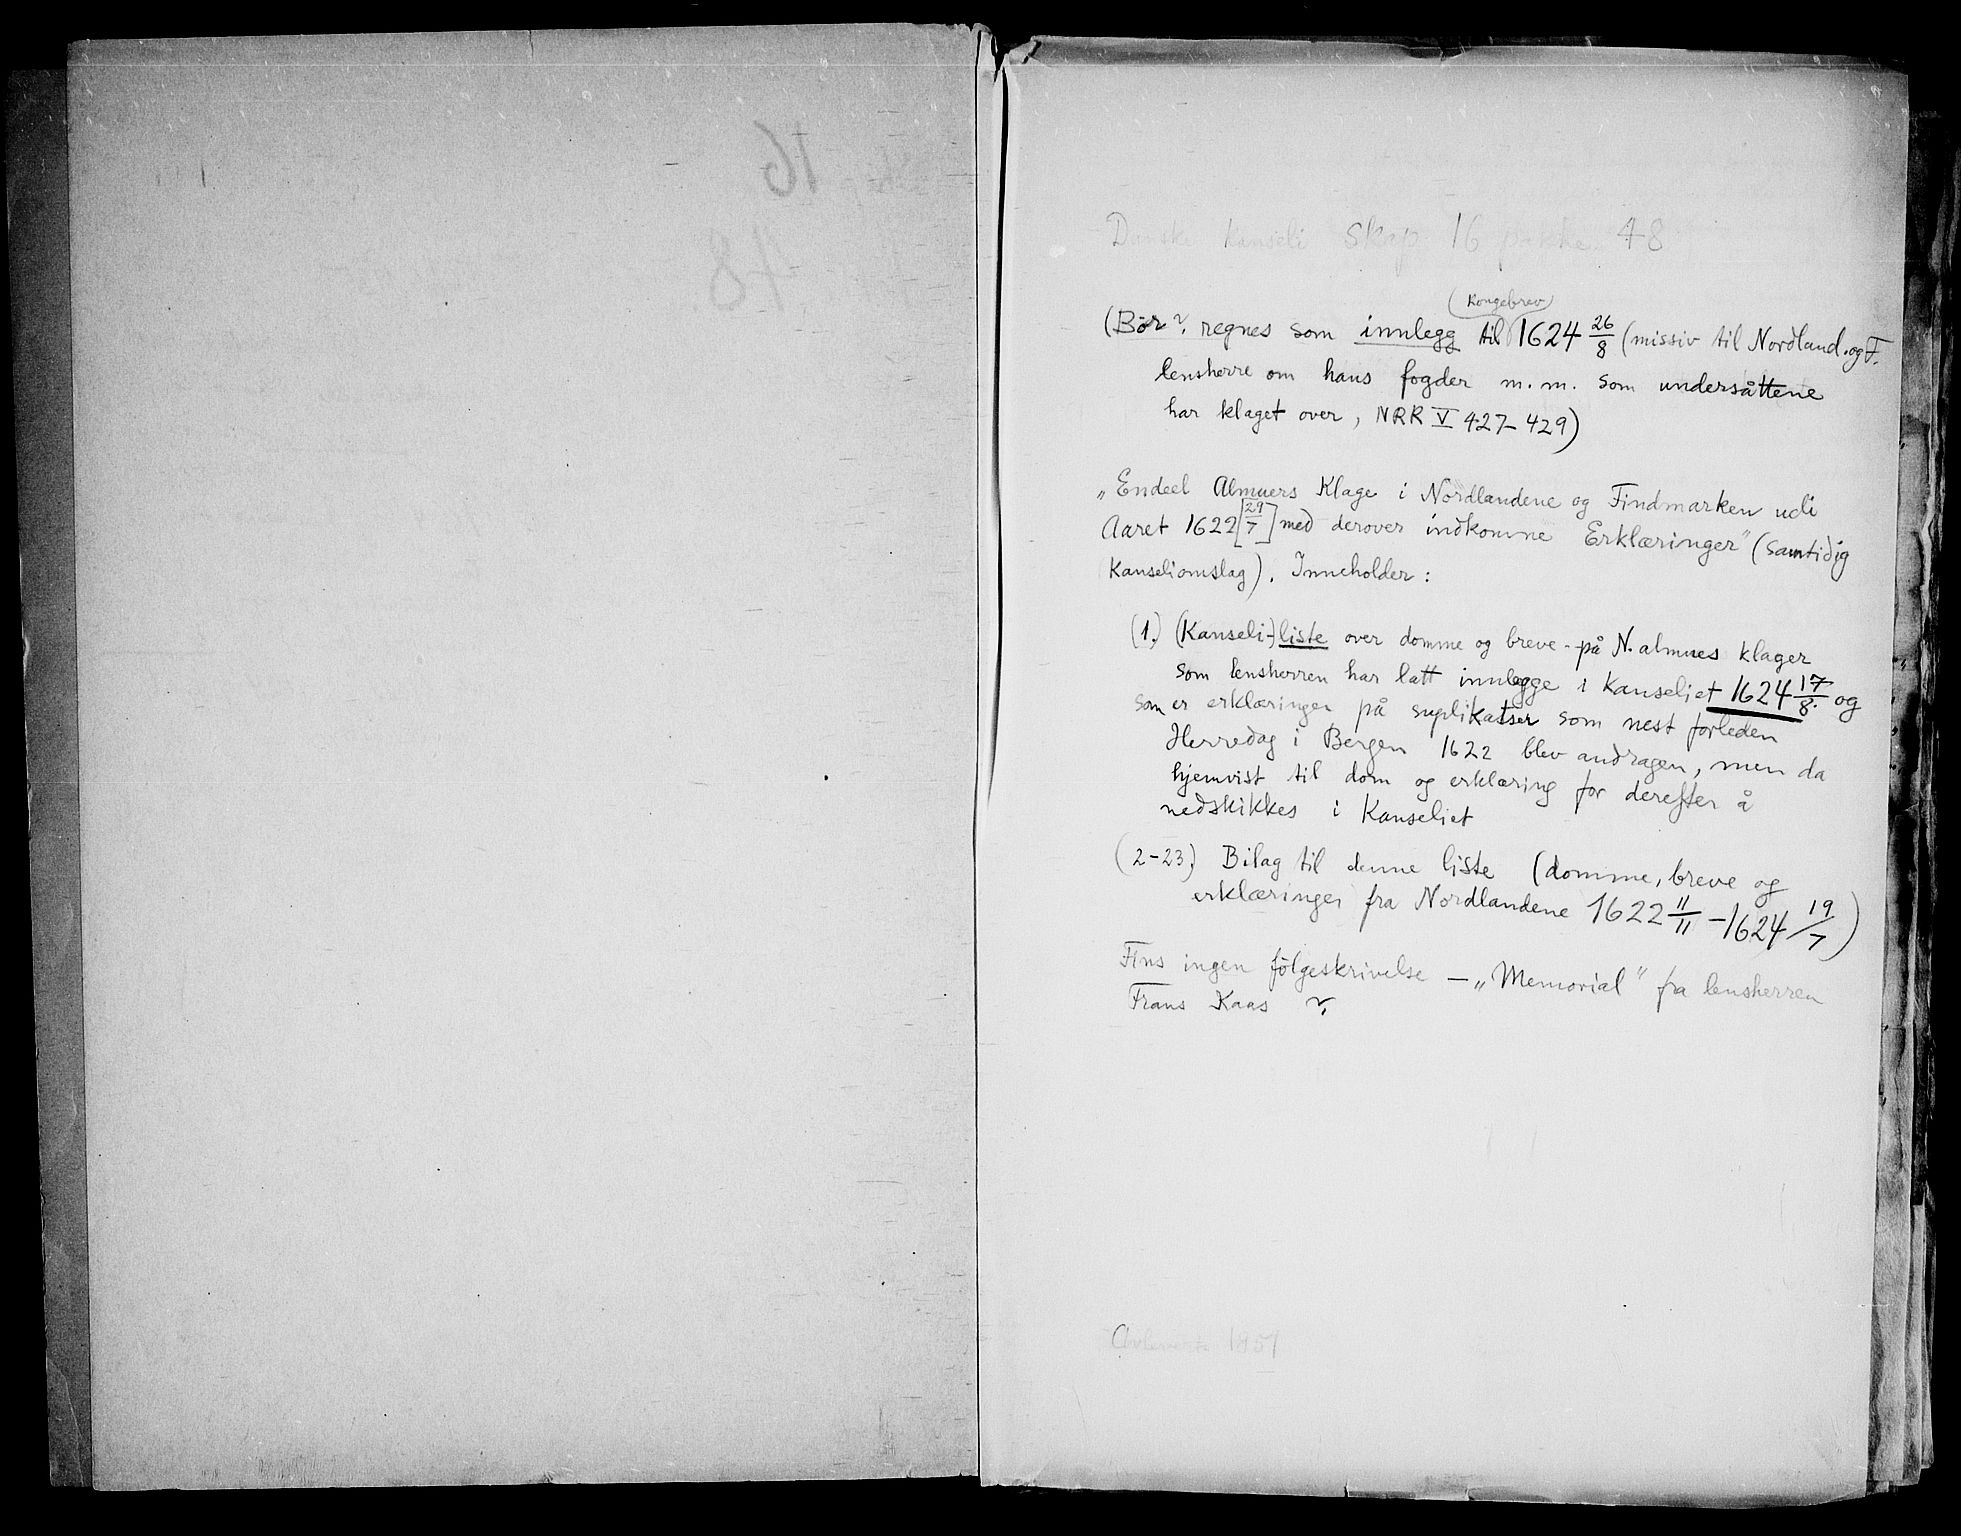 Danske Kanseli Skap 16 pakke 48
(Kongebrev)
(Bör? regnes som innlegg til 1624 26/8 (missiv til Nordland. og F.
lensherre om hans fogder m.m. som undersåttene
har klaget over, NRR V 427-429)
„Endeel Almuers Klage i Nordlandene og Findmarken udi
Aaret 1622 [29/7] med derover indkomne Erklæringer" (samtidig
Kanseliomslag). Inneholder:
(1.) (Kanseli-)liste over domme og breve - på N. almues klager
som lensherren har latt innlegge i Kanseliet 1624 17/8. og
som er erklæringer på suplikatser som nest forleden
Herredag i Bergen 1622 blev andragen, men da
hjemvist til dom og erklæring for derefter å
nedskikkes i Kanseliet
(2-23.) Bilag til denne liste (domme, breve og
erklæringer fra Nordlandene 1622 11/11 - 1624 19/7)
Fins ingen følgeskrivelse — „Memorial" fra lensherren
Frans Kaas ?
16
48